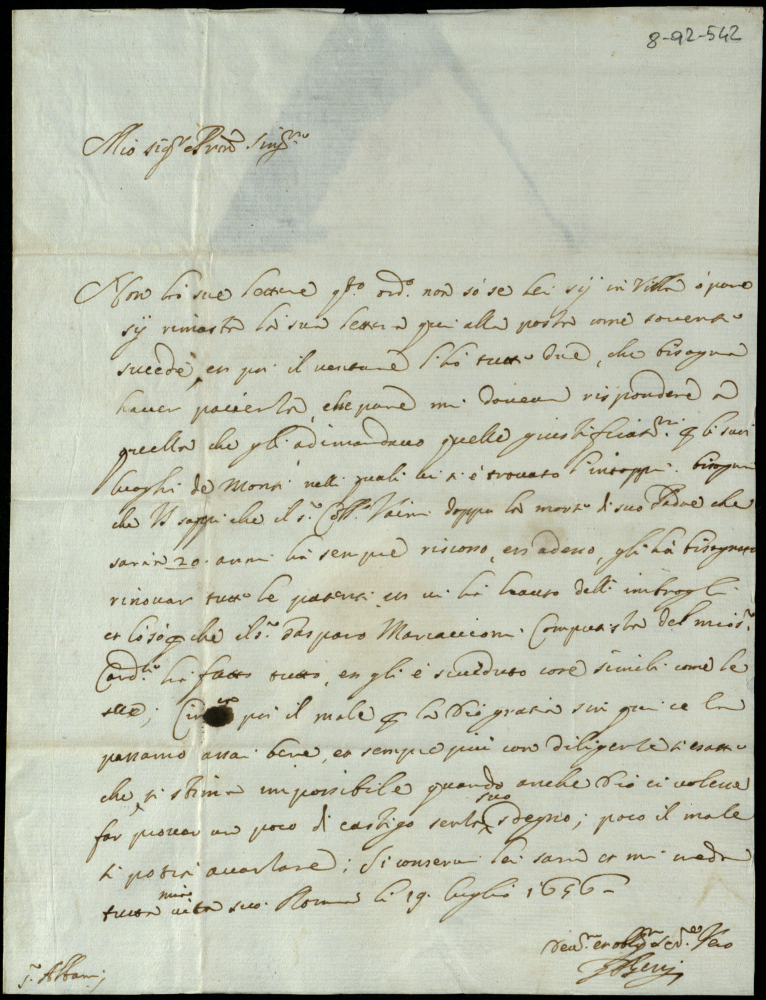 8-92-542
Mio sig.r e Pron Sing.mo
Non hò sue lettere q.to ord.o non sò se lei sij in Villa ò pure
sij rimasta la sua lettera qui alla posta come sovente
succede, et poi il venturo l'hò tutte due, che bisogna
haver pacienza, che pure mi doveva rispondere a
quella che gli adimandavo quelle giustificat.ni p li suoi
luoghi de Monti nelli quali vi si è trovato l'intoppi. bisogna
che VS sappi che il s.r doppo la morte di suo Padre che
saran 20. anni hà sempre riscosso, et adesso, gli hà bisognato
rinovar tutte le patenti et vi hà hauto delli imbrogli
et lo sò p che il s.r Gasparo Marcaccioni Computista del mio s.r
Card.le hà fatto tutto, et gli è succeduto cose simili come le
sue; Circa poi il male p la Dio gratia sin qui ce la
passamo assai bene, et sempre più con diligenze si esatte
che si stima impossibile quando anche Dio ci volesse
far provar un poco di castigo senza suo sdegno; poco il male
si potrà avanzare; Si conservi lei sano et mi creda
tutta mia vita suo. Roma li 19. luglio 1656
Dev.mo et obblig.mo Ser.re Vero
s.r Albani